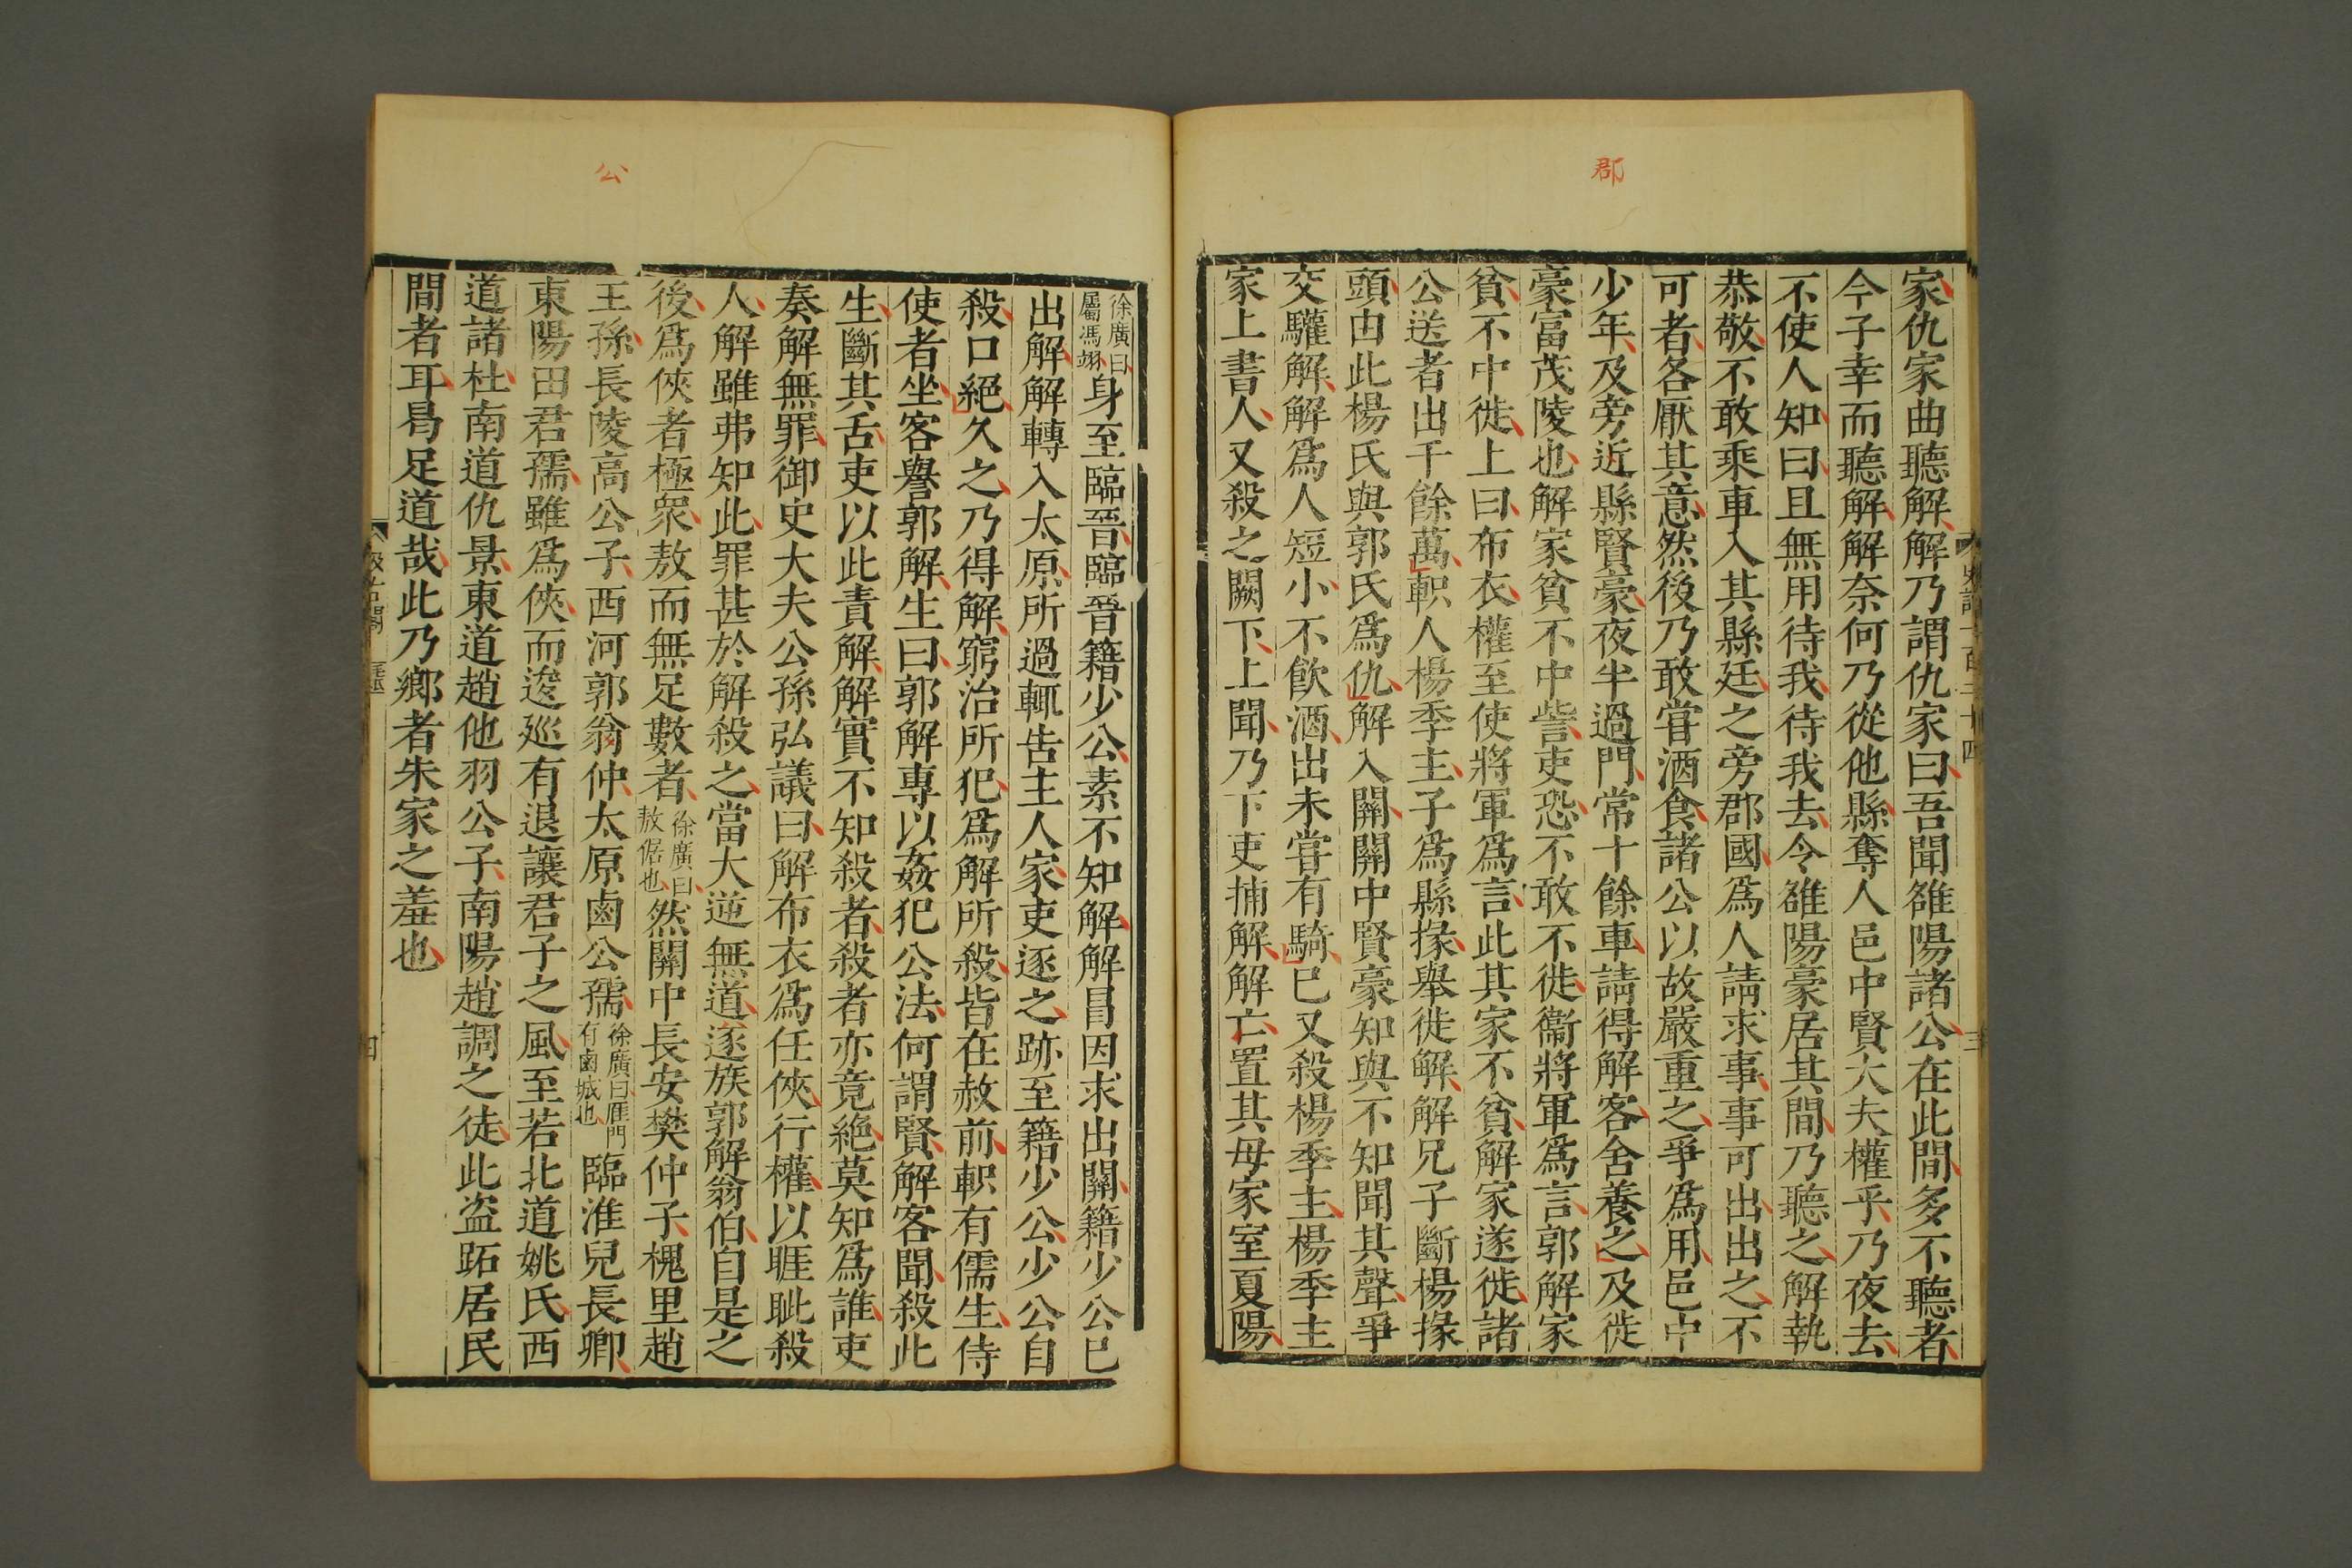 郡
家仇家曲聽解解乃謂仇家曰吾聞雒陽諸公在此間多不聽者
今子幸而聽解解奈何乃從他縣奪人邑中賢大夫權乎乃夜去
不使人知曰且無用待我待我去令雒陽豪居其間乃聽之解執
恭敬不敢乘車入其縣廷之旁郡國爲人請求事事可出出之不
可者各厭其意然後乃敢嘗酒食諸公以故嚴重之爭爲用邑中
少年及旁近縣賢豪夜半過門常十餘車請得解客舍養之及徙
豪富茂陵也解家貧不中訾吏恐不敢不徙衞將軍爲言郭解家
貧不中徙上曰布衣權至使將軍爲言此其家不貧解家遂徙諸
公送者出千餘萬軹人楊季主子爲縣掾舉徙解解兄子斷楊掾
頭由此楊氏與郭氏爲仇解入關關中賢豪知與不知聞其聲爭
交驩解解爲人短小不飮酒出未嘗有騎巳又殺楊季主楊季主
家上書人又殺之闕下上聞乃下吏捕解解亡置其母家室夏陽
史記一百二十四
三
公
徐廣曰
屬馮翊
身至臨晉臨晉籍少公素不知解解冒因求出關籍少公巳
出解解轉入太原所過輒告主人家吏逐之跡至籍少公少公自
殺口絕久之乃得解窮治所犯爲解所殺皆在赦前軹有儒生侍
使者坐客譽郭解生曰郭解專以姦犯公法何謂賢解客聞殺此
生斷其舌吏以此責解解實不知殺者殺者亦竟絶莫知爲誰吏
奏解無罪御史大夫公孫弘議曰解布衣爲任俠行權以睚眦殺
人解雖弗知此罪甚於解殺之當大逆無道遂族郭解翁伯自是之
後爲俠者極衆敖而無足數者
徐廣曰
敖倨也
然關中長安樊仲子槐里趙
王孫長陵高公子西河郭翁仲太原鹵公孺
徐廣曰鴈門
有鹵城也
臨淮兒長卿
東陽田君孺雖爲俠而逡廵有退讓君子之風至若北道姚氏西
道諸杜南道仇景東道趙他羽公子南陽趙調之徒此盜跖居民
間者耳曷足道哉此乃鄉者朱家之羞也
汲古閣
四